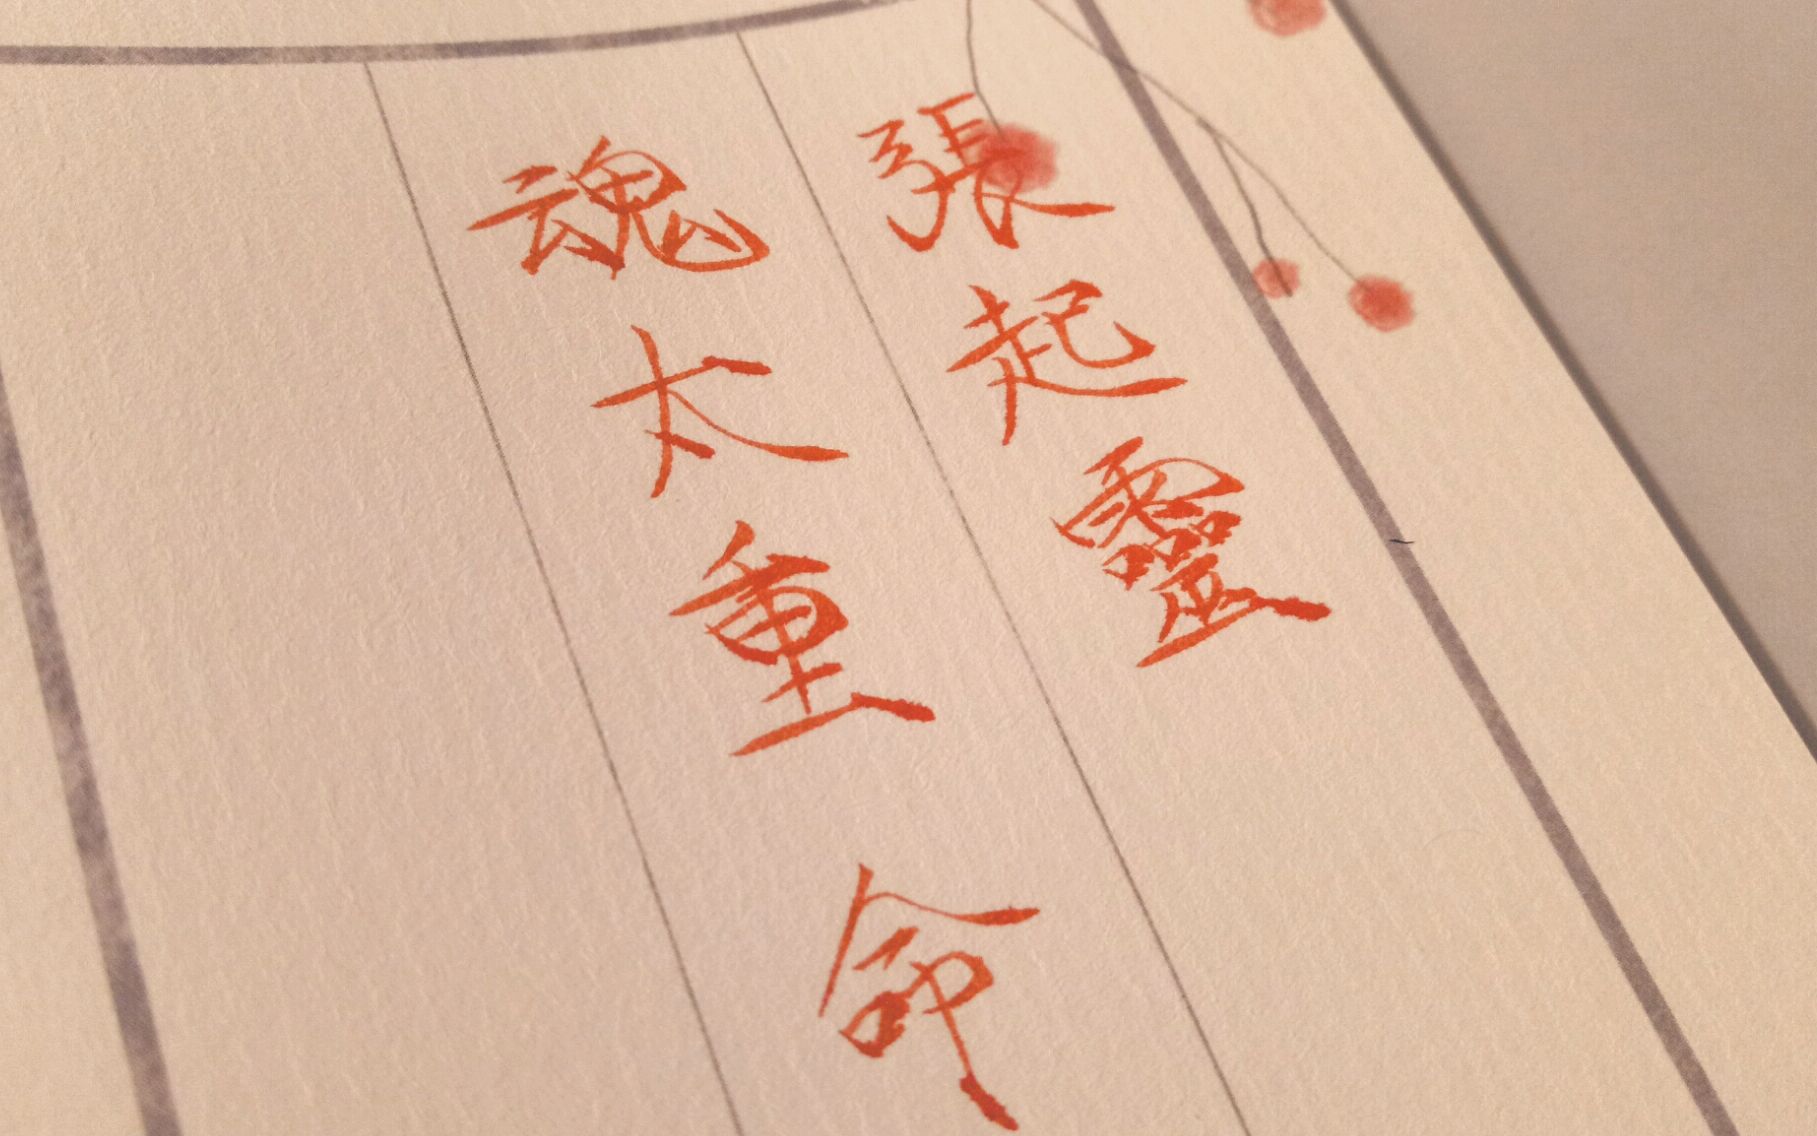 張起靈
魂太重 命